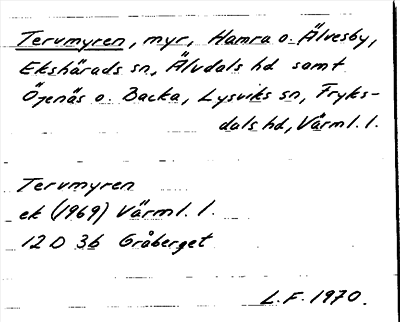 Tervmyren, myr, Hamra o. Älvesby,
Ekshärads sn, Älvdals hd samt
Öjenäs o. Backa, Lysviks sn, Fryks-
dals hd, Värml. l.
Tervmyren
ek (1969) Värml. l.
12 D 3b Gråberget
L.F. 1970.